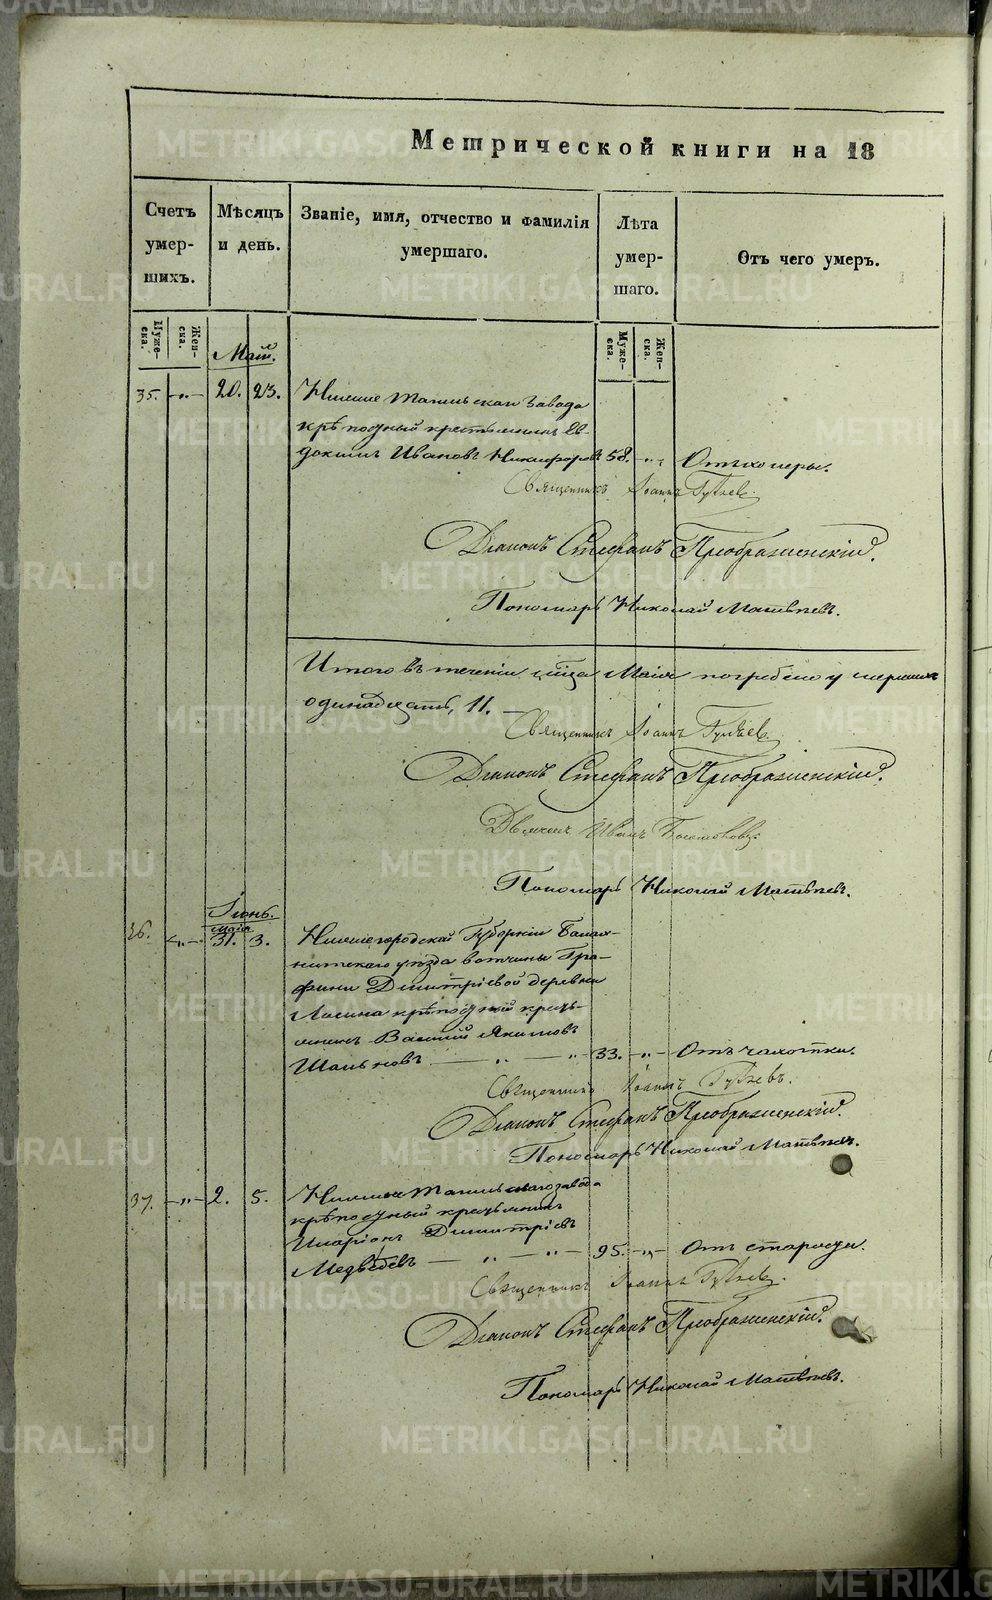 Метрической книги на 18
Счетъ умер-шихъ.
Мѣсяцъ и день.
Званіе, имя, отчество и фамилія умершаго.
Лѣта умер-шаго.
Отъ чего умеръ.
Муже-ска.
Жен-ска.
Муже-ска.
Жен-ска.
Маія.
35. -„- 20. 23. Нижне Тагильскаго Завода
крѣпосный крестьянинъ Ев-
докимъ Ивановъ Никифоровъ 58. -„- Отъ холеры.
Священникъ Іоаннъ
Діаконъ Стефанъ Преображенскій.
Пономарь Николай Матвѣевъ.
Итого въ теченіи мѣсяца Маія погребено умершихъ
одинадцать, 11.
Священникъ Іоаннъ
Діаконъ Стефанъ Преображенскій.
Дьячекъ Иванъ
Пономарь Николай Матвѣевъ.
Іюнь.
Маія
36. -„- 31. 3. Нижегородской Губерніи Балах-
нитскаго уѣзда вотчины Гра-
фини Димитріевой деревни
крѣпосный кресть-
янинъ Василій Якимовъ
Шальновъ — „ — „ 33. -„- Отъ чахотки.
Священникъ Іоаннъ
Діаконъ Стефанъ Преображенскій.
Пономарь Николай Матвѣевъ.
37. -„- 2. 5. Нижне Тагильскаго завода
крѣпосный крестьянинъ
Иларіонъ Димитріевъ
Медвѣдевъ — „ — „ — 95. -„- Отъ старости.
Священникъ Іоаннъ
Діаконъ Стефанъ Преображенскій.
Пономарь Николай Матвѣевъ.
METRIKI.GASO-URAL.RU